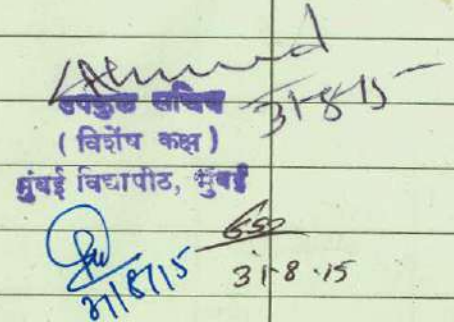 Ahmed
31-8-15
उपकुल सचिव
( विशेष कक्ष )
मुंबई विद्यापीठ, मुंबई
31/8/15
31-8-15